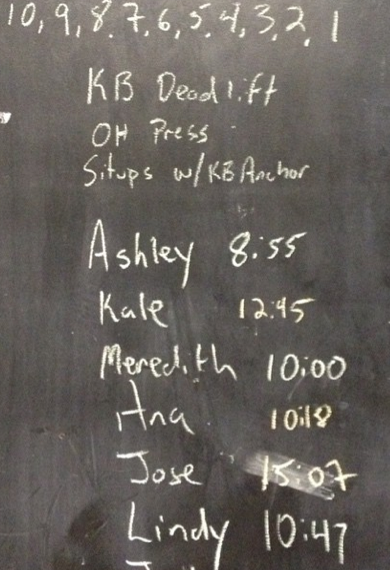 10, 9, 8, 7, 6, 5, 4, 3, 2, 1
KB Deadlift
OH Press
Situps w/ KB Anchor
Ashley 8:55
Kale 12:45
Meredith 10:00
Ana 10:18
Jose 15:07
Lindy 10:47